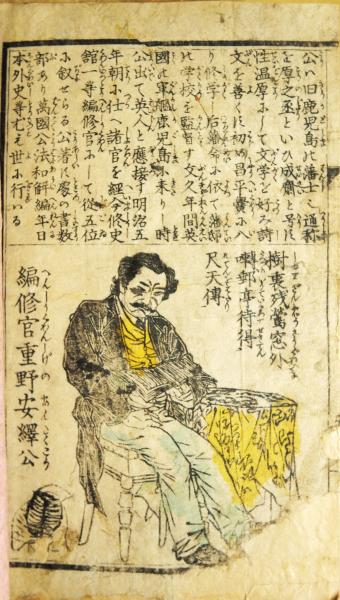 公ハ旧鹿児島の藩士にて通称
を厚之丞といひ成齋と号す
性温厚にして文学を好み詩
文を善くす初め昌平黌に入
り修学し后藩命に依て藩邸
の学校を監督す文久年間英
國の軍艦鹿児島に来りし時
公出て英人と應接す明治五
年朝に仕へ諸官を經今修史
館一等編修官にして従五位
に叙せらる公著す處の書数
部あり萬國公法和解編年日
本外史等尤も世に行いる
樹裏残鶯窓外
啼郵亭待得
尺天傳
編修官重野安繹公